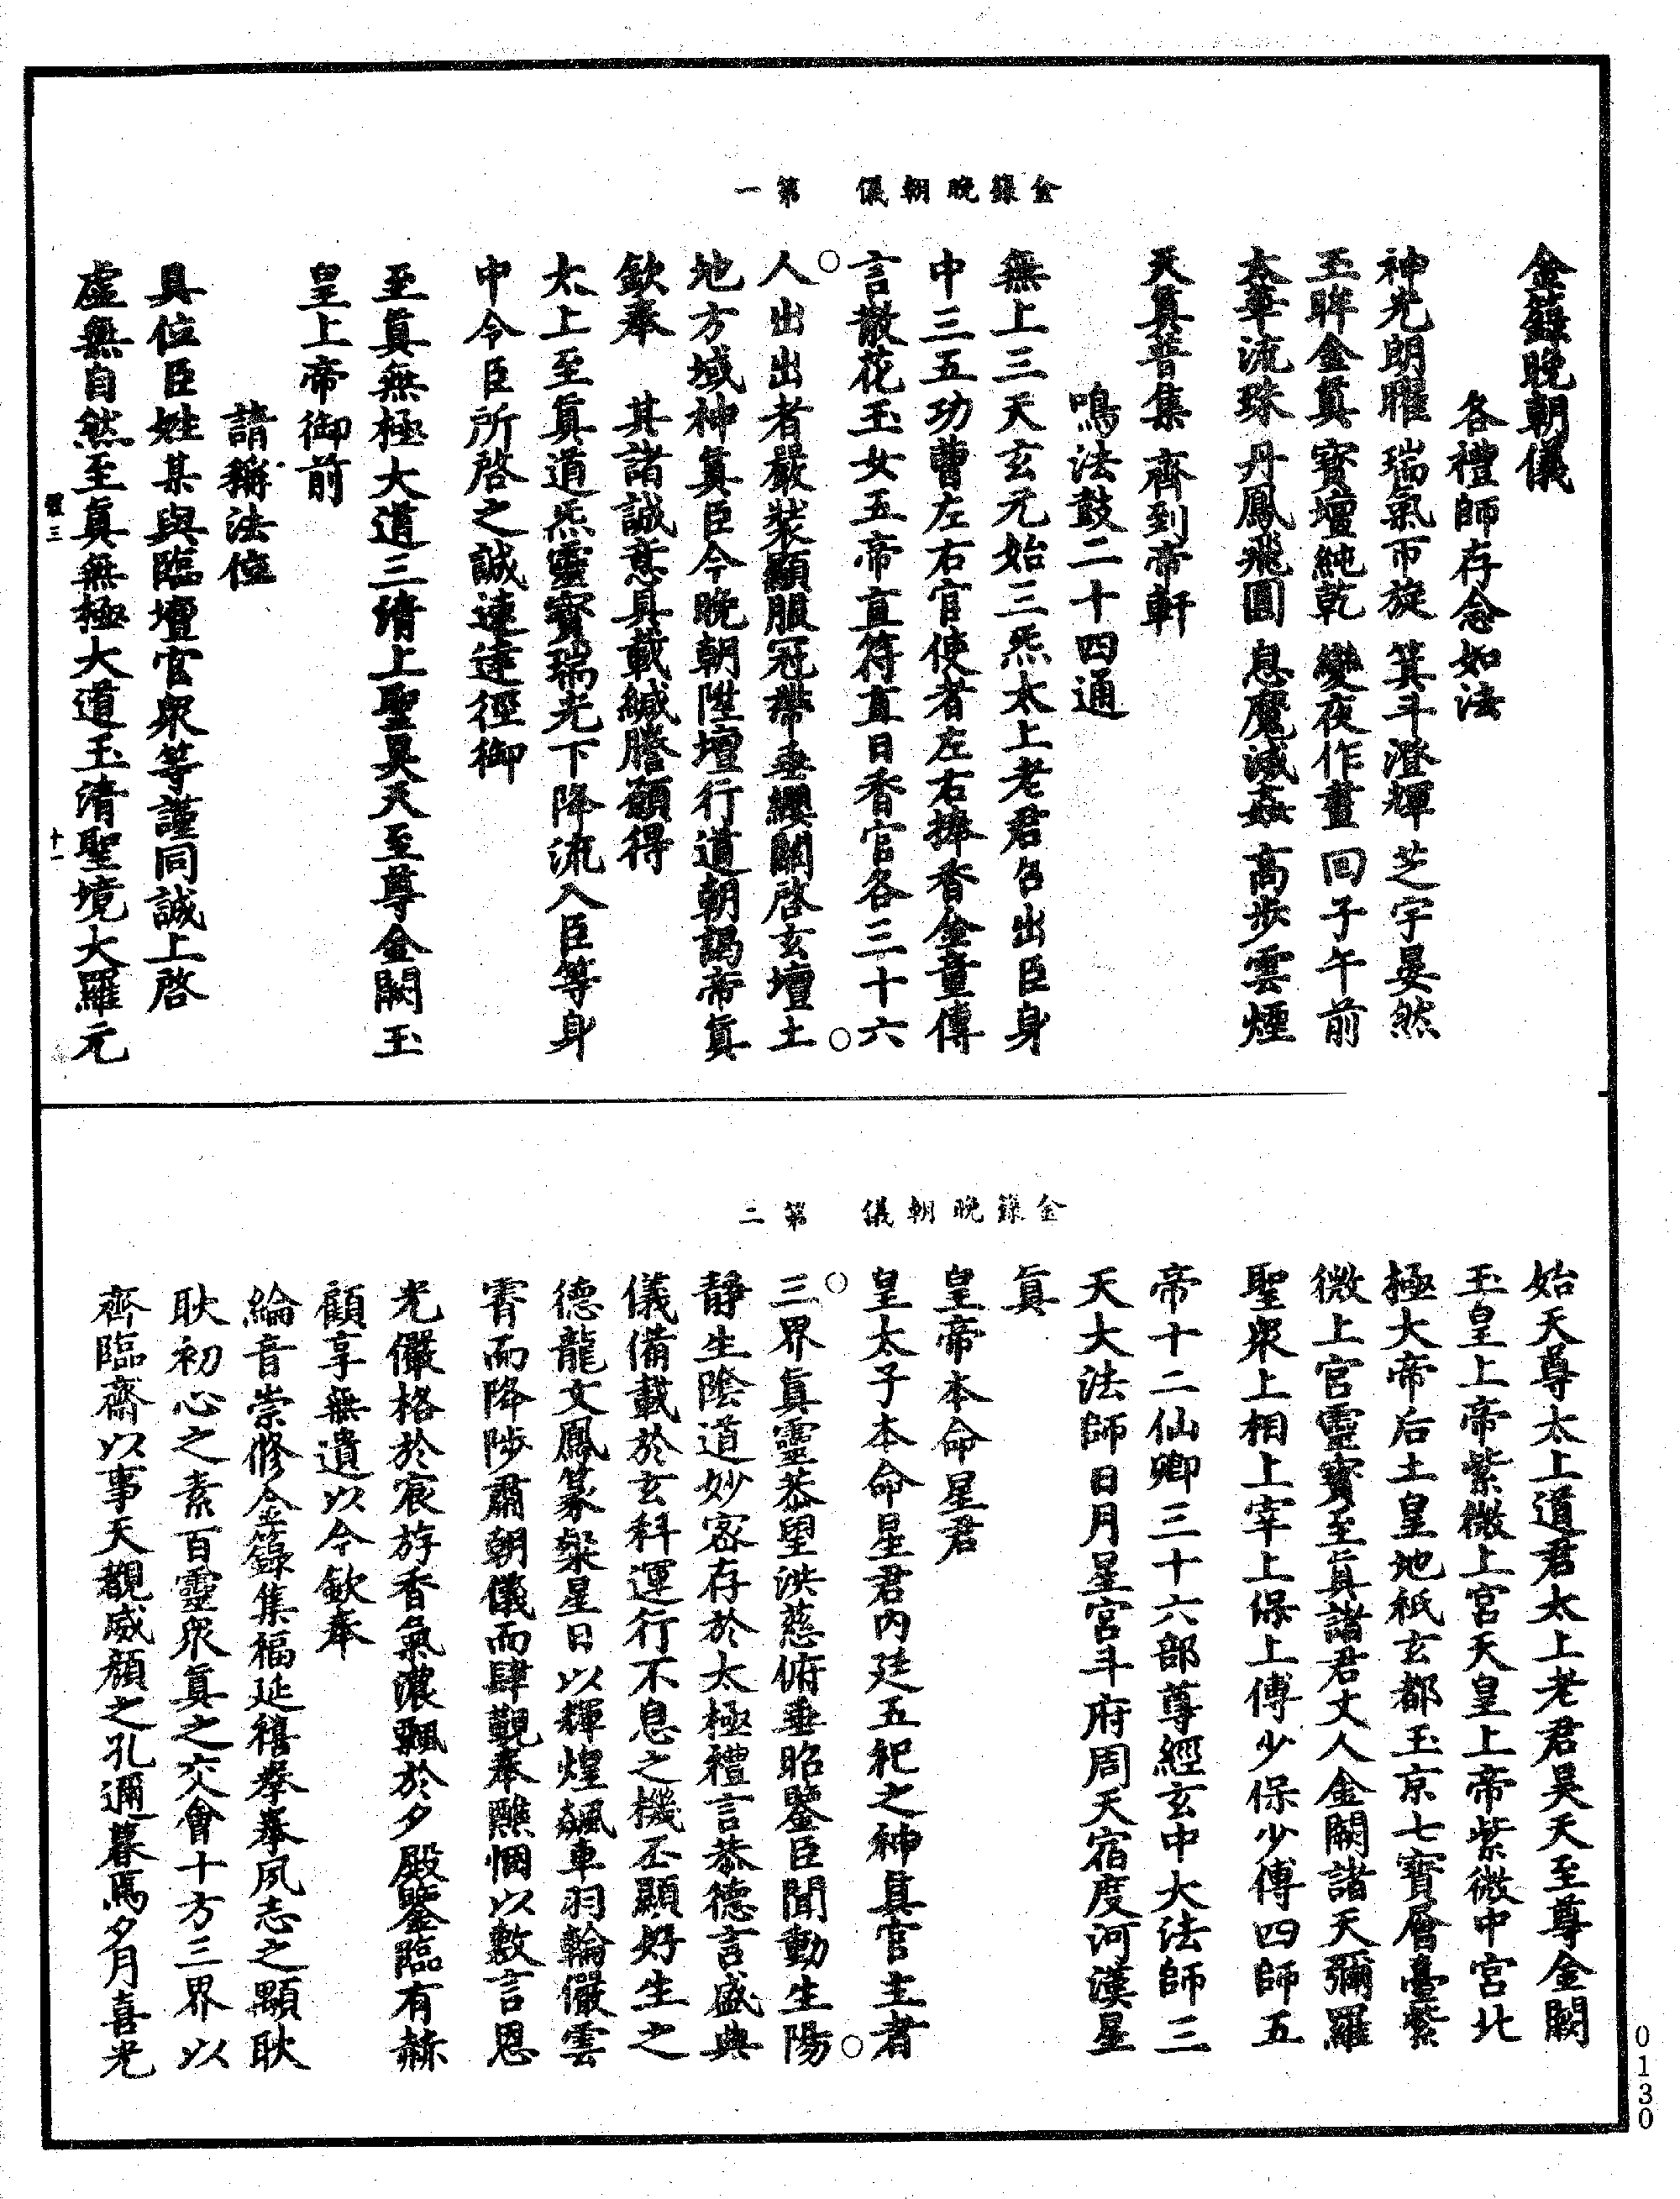 金籙晚朝儀　第一
金籙晚朝儀
各禮師存念如法
神光朗曜　瑞氣帀旋　箕斗澄輝　芝宇晏然
玉眸金真　寶壇純乾　變夜作晝　回子午前
太華流珠　丹鳳飛圓　息魔滅姦　高步雲煙
天真普集　齊到帝軒
鳴法鼓二十四通
無上三天玄元始三炁太上老君召出臣身
中三五功曹左右官使者左右捧香金童傳
言散花玉女五帝直符直日香官各三十六
人出出者嚴裝顯服冠帶垂纓關啓玄壇土
地方域神真臣今晚朝陞壇行道朝謁帝真
欽奉　其諸誠意具載緘謄願得
太上至真道炁靈寶瑞光下降流入臣等身
中令臣所啓之誠速達徑御
至真無極大道三清上聖昊天至尊金闕玉
皇上帝御前
請稱法位
具位臣姓某與臨壇官眾等謹同誠上啓
虛無自然至真無極大道玉清聖境大羅元
三　十一
金籙晚朝儀　第二
始天尊太上道君太上老君昊天至尊金闕
玉皇上帝紫微上宮天皇上帝紫微中宮北
極大帝后土皇地祇玄都玉京七寶層臺紫
微上宮靈寶至真諸君丈人金闕諸天彌羅
聖眾上相上宰上保上傅少保少傅四師五
帝十二仙卿三十六部尊經玄中大法師三
天大法師日月星宮斗府周天宿度河漢星
真
皇帝本命星君
皇太子本命星君內廷五祀之神真官主者
三界真靈恭望洪慈俯垂昭鑒臣聞動生陽
靜生陰道妙密存於太極禮言恭德言盛典
儀備載於玄科運行不息之機丕顯好生之
德龍文鳳篆粲星日以輝煌飆車羽輪儼雲
霄而降陟肅朝儀而肆覲奉醮悃以敷言恩
光儼格於宸斿香氣濃飄於夕殿鑒臨有赫
顧享無遺以今欽奉
綸音崇修金籙集福延禧拳拳夙志之顯耿
耿初心之素百靈眾真之交會十方三界以
齊臨齋以事天覿威顏之孔邇暮焉夕月喜光
0130